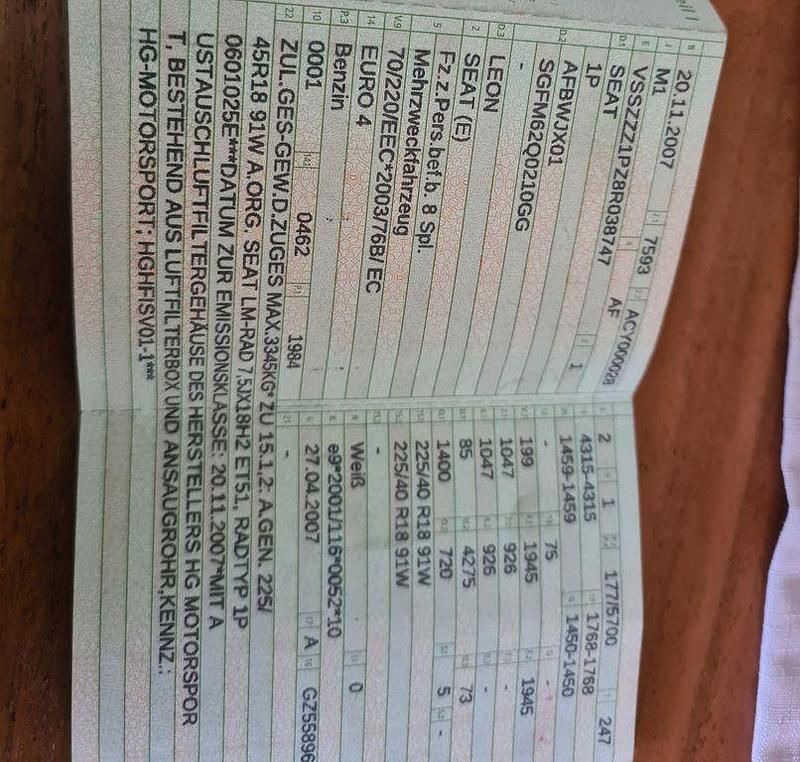 20.11.2007
M1 7593 ACY000028
VSSZZZ1PZ8R038747 AF
SEAT
1P
AFBWJX01 1
SGFM62Q0210GG
-
LEON
SEAT (E)
Fz.z.Pers.bef.b. 8 Spl.
Mehrzweckfahrzeug
70/220/EEC*2003/76B/ EC
EURO 4
Benzin
0001 0462 1984
2 1 177/5700 247
4315-4315 1768-1768
1459-1459 1450-1450
- 75 -
199 1945 1945
1047 926 -
1047 926 -
85 4275 73
1400 720 5 -
225/40 R18 91W
225/40 R18 91W
-
Weiß 0
e9*2001/116*0052*10
27.04.2007 A GZ55896
-
ZUL.GES-GEW.D.ZUGES MAX.3345KG* ZU 15.1,2: A.GEN. 225/
45R18 91W A.ORG. SEAT LM-RAD 7,5JX18H2 ET51, RADTYP 1P
0601025E***DATUM ZUR EMISSIONSKLASSE: 20.11.2007*MIT A
USTAUSCHLUFTFILTERGEHÄUSE DES HERSTELLERS HG MOTORSPOR
T, BESTEHEND AUS LUFTFILTERBOX UND ANSAUGROHR,KENNZ.:
HG-MOTORSPORT; HGHFISV01-1***